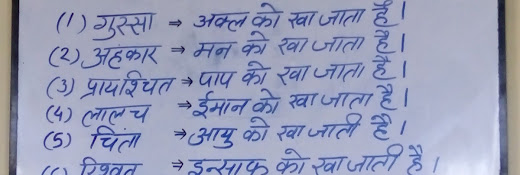 (1) गुस्सा ⇒ अक्ल को खा जाता है।
(2) अहंकार ⇒ मन को खा जाता है।
(3) प्रायश्चित ⇒ पाप को खा जाता है।
(4) लालच ⇒ ईमान को खा जाता है।
(5) चिंता ⇒ आयु को खा जाती है।
रिश्वत ⇒ इन्साफ को खा जाती है।